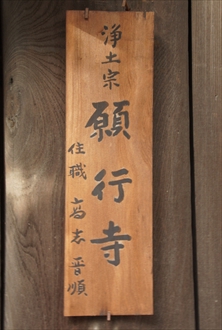 浄土宗
願行寺
住職 高志晋順